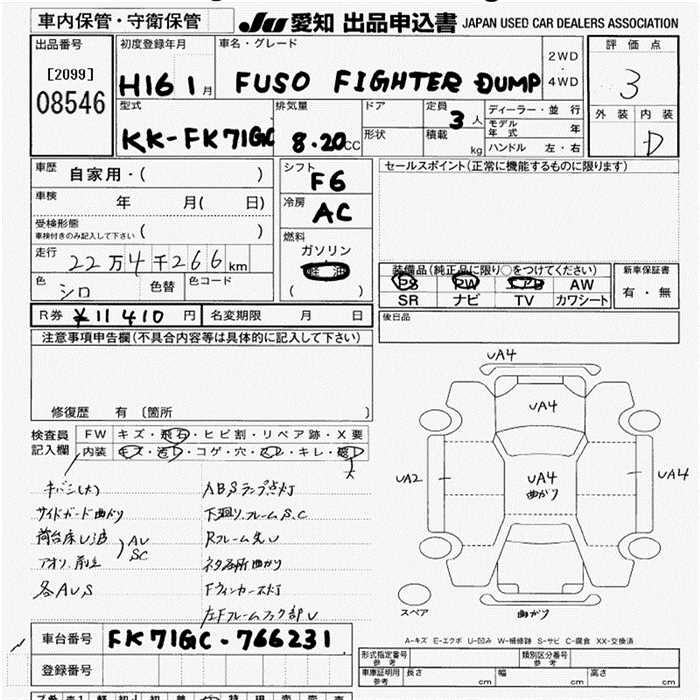 車内保管・守衛保管
JU 愛知 出品申込書 JAPAN USED CAR DEALERS ASSOCIATION
出品番号
[2099]
08546
初度登録年月
H16 1月
車名・グレード
FUSO FIGHTER DUMP
2WD
・
4WD
評価点
3
外装 内装
D
型式
KK-FK71GC
排気量
8.20CC
ドア
形状
定員
3人
積載
kg
ディーラー・並行
モデル年式 年
ハンドル 左・右
車歴
自家用・( )
車検
年 月( 日)
受検形態
車検付きのみ記入して下さい ( )
走行
22万4千266km
色
シロ
色替
色コード
シフト
F6
冷房
AC
燃料
ガソリン
軽油
( )
セールスポイント(正常に機能するものに限ります)
装備品(純正品に限り○をつけてください)
PS PW エアB AW
SR ナビ TV カワシート
新車保証書
有・無
R券 ¥11410円
名変期限 月 日
後日品
注意事項申告欄(不具合内容等は具体的に記入して下さい)
修復歴 有 〔箇所 〕
検査員
記入欄
FW キズ・飛石・ヒビ割・リペア跡・X要
内装 キズ・汚レ・コゲ・穴・スレ・キレ・破レ
大
キバミ(大)
サイドガード曲がり
荷台床U波
アオリ、前立
AU
SC
各AUS
ABSランプ点灯
下廻り、フレームS.C
Rフレーム先U
ネタ各所曲がり
左Fフレームフック部U
UA4
UA4
UA2
UA4
曲がり
UA4
曲がり
スペア
A-キズ E-エクボ U-凹み W-補修跡 S-サビ C-腐食 XX-交換済
車台番号
FK71GC-766231
登録番号
形式指定番号
参考
類別区分番号
参考
車庫証明用
参考
長さ cm
幅 cm
高さ cm